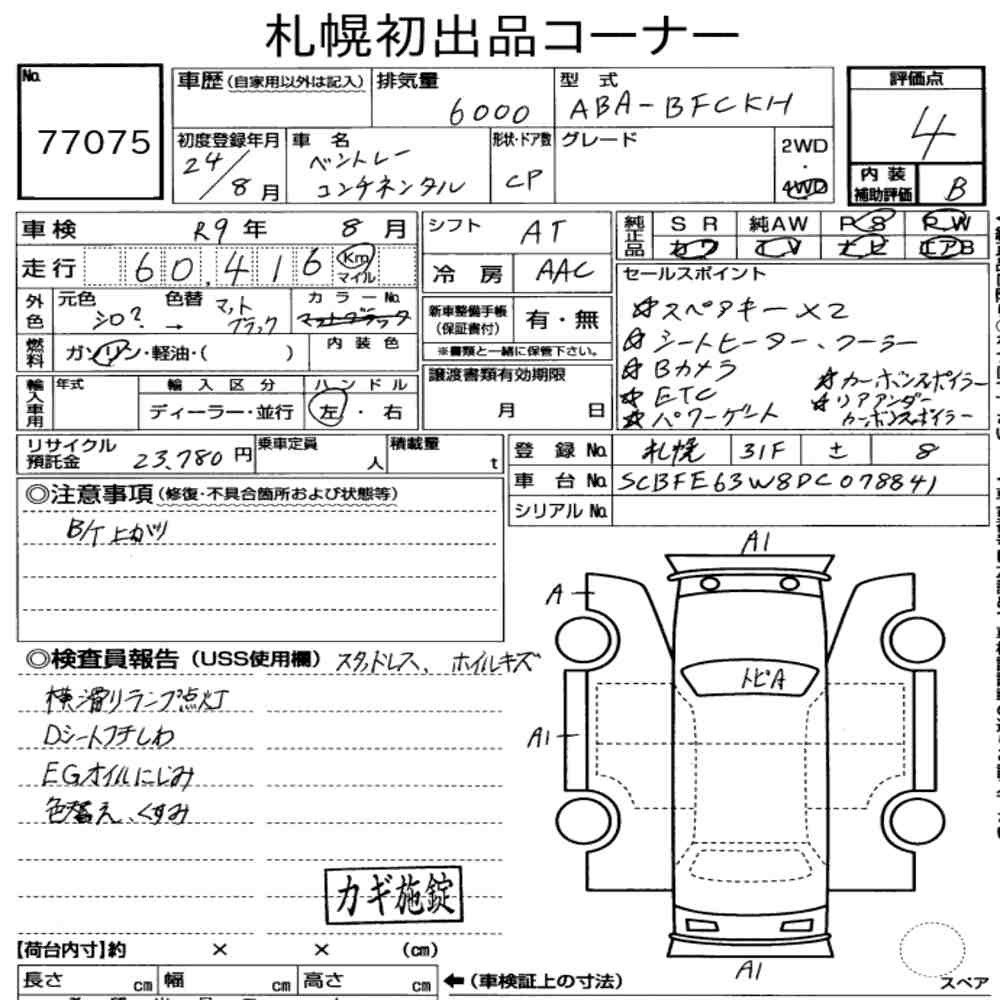 札幌初出品コーナー
No.
77075
車歴(自家用以外は記入)
排気量
6000
型 式
ABA-BFCKH
評価点
4
初度登録年月
24/8月
車 名
ベントレー
コンチネンタル
形状・ドア数
CP
グレード
2WD
・
4WD
内装
補助評価
B
車検
R9年 8月
走行
60,416
Km
マイル
シフト
AT
冷 房
AAC
純正品
SR
純AW
PS
PW
カワ
TV
ナビ
エアB
セールスポイント
☆スペアキー×2
☆シートヒーター、クーラー
☆Bカメラ
☆ETC
☆パワーゲート
☆カーボンスポイラー
☆リアアンダー
カーボンスポイラー
外色
元色
シロ?
→
色替
マット
ブラック
カラーNo.
マットブラック
燃料
ガソリン・軽油・( )
内装色
新車整備手帳
(保証書付)
有・無
※書類と一緒に保管下さい。
輸入車用
年式
輸入区分
ディーラー・並行
ハンドル
左・右
譲渡書類有効期限
月 日
リサイクル
預託金
23,780円
乗車定員
人
積載量
t
登 録 No.
札幌
31F
±
8
車 台 No.
SCBFE63W8DC078841
シリアル No.
◎注意事項(修復・不具合箇所および状態等)
B/T上がり
◎検査員報告(USS使用欄)
スタッドレス、ホイルキズ
横滑りランプ点灯
Dシートフチしわ
EGオイルにじみ
色替え、くすみ
カギ施錠
A1
A
トビA
A1
A1
【荷台内寸】約 × × (cm)
長さ cm
幅 cm
高さ cm
←(車検証上の寸法)
スペア